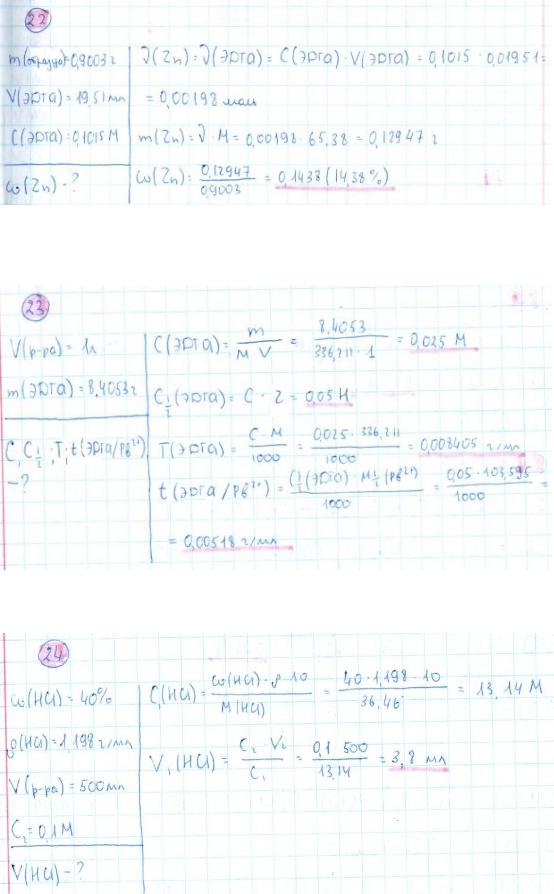 22
m(образца)=0,9003 г
V(ЭДТА)=19,51 мл
C(ЭДТА)=0,1015 M
ω(Zn)-?
ν(Zn)=ν(ЭДТА)=C(ЭДТА)·V(ЭДТА)=0,1015·0,01951=
=0,00198 моль
m(Zn)=ν·M=0,00198·65,38=0,12947 г
ω(Zn)=0,12947/0,9003=0,1438(14,38%)
23
V(р-ра)=1л
m(ЭДТА)=8,4053г
C, C½; T; t(ЭДТА/Pb²⁺)
-?
C(ЭДТА)=m/M V=8,4053/336,211·1=0,025 M
C½(ЭДТА)=C·2=0,05 H
T(ЭДТА)=C·M/1000=0,025·336,211/1000=0,008405 г/мл
t(ЭДТА/Pb²⁺)=C½(ЭДТА)·M½(Pb²⁺)/1000=0,05·103,595/1000=
=0,00518 г/мл
24
ω(HCl)=40%
ρ(HCl)=1,198 г/мл
V(р-ра)=500мл
C₂=0,1M
V(HCl)-?
C₁(HCl)=ω(HCl)·ρ·10/M(HCl)=40·1,198·10/36,46=13,14 M
V₁(HCl)=C₂ V₂/C₁=0,1·500/13,14=3,8 мл